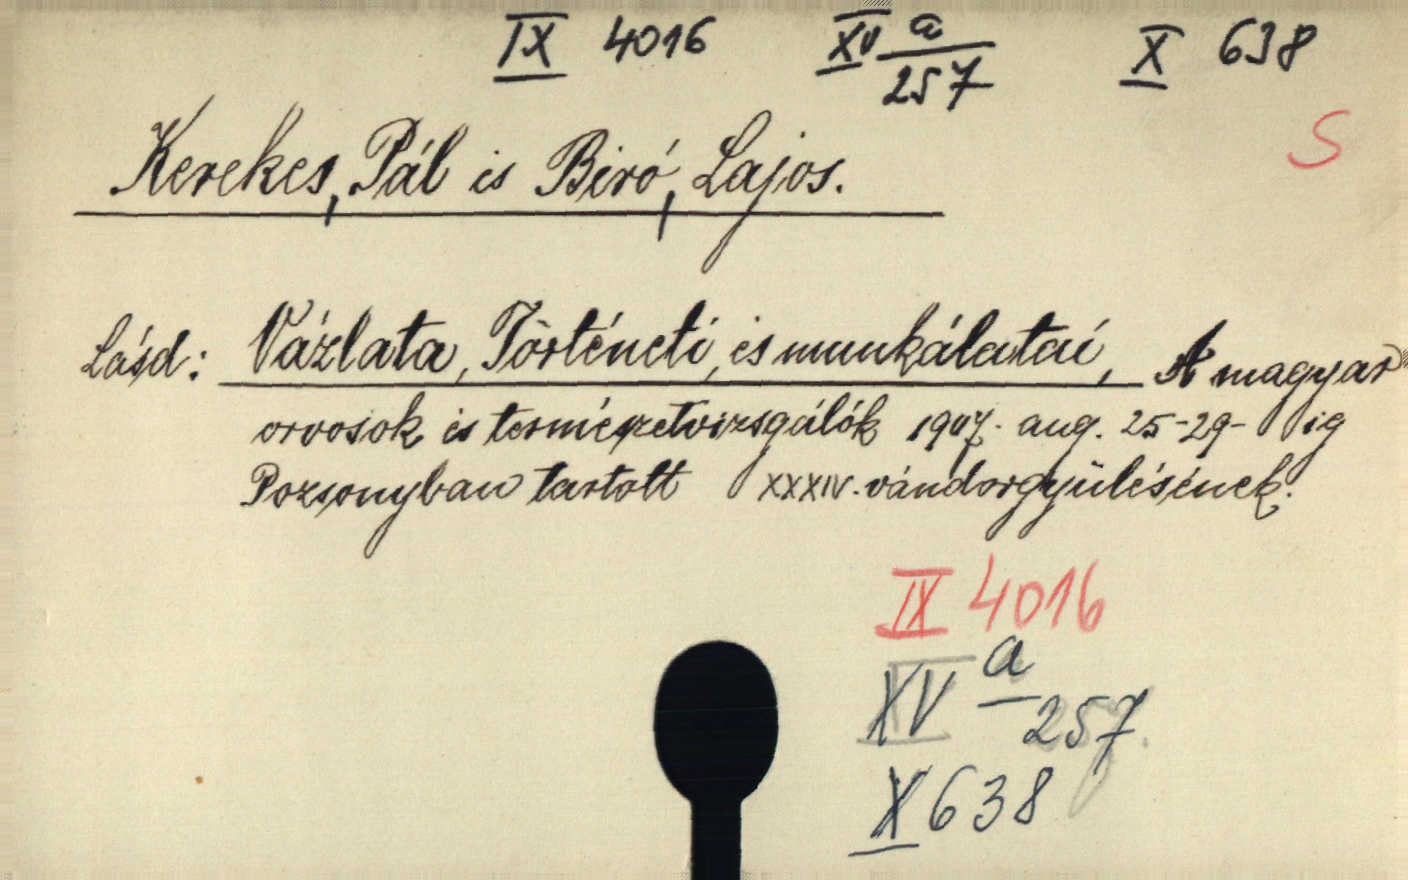 IX 4016 XV a/257 X 638
S
Kerekes, Pál és Biró, Lajos.
Lásd: Vázlata, Történeti, és munkálatai, A magyar
orvosok és természetvizsgálók 1907. aug. 25-29-ig
Pozsonyban tartott XXXIV. vándorgyülésének.
IX 4016
XV a/257.
X 638